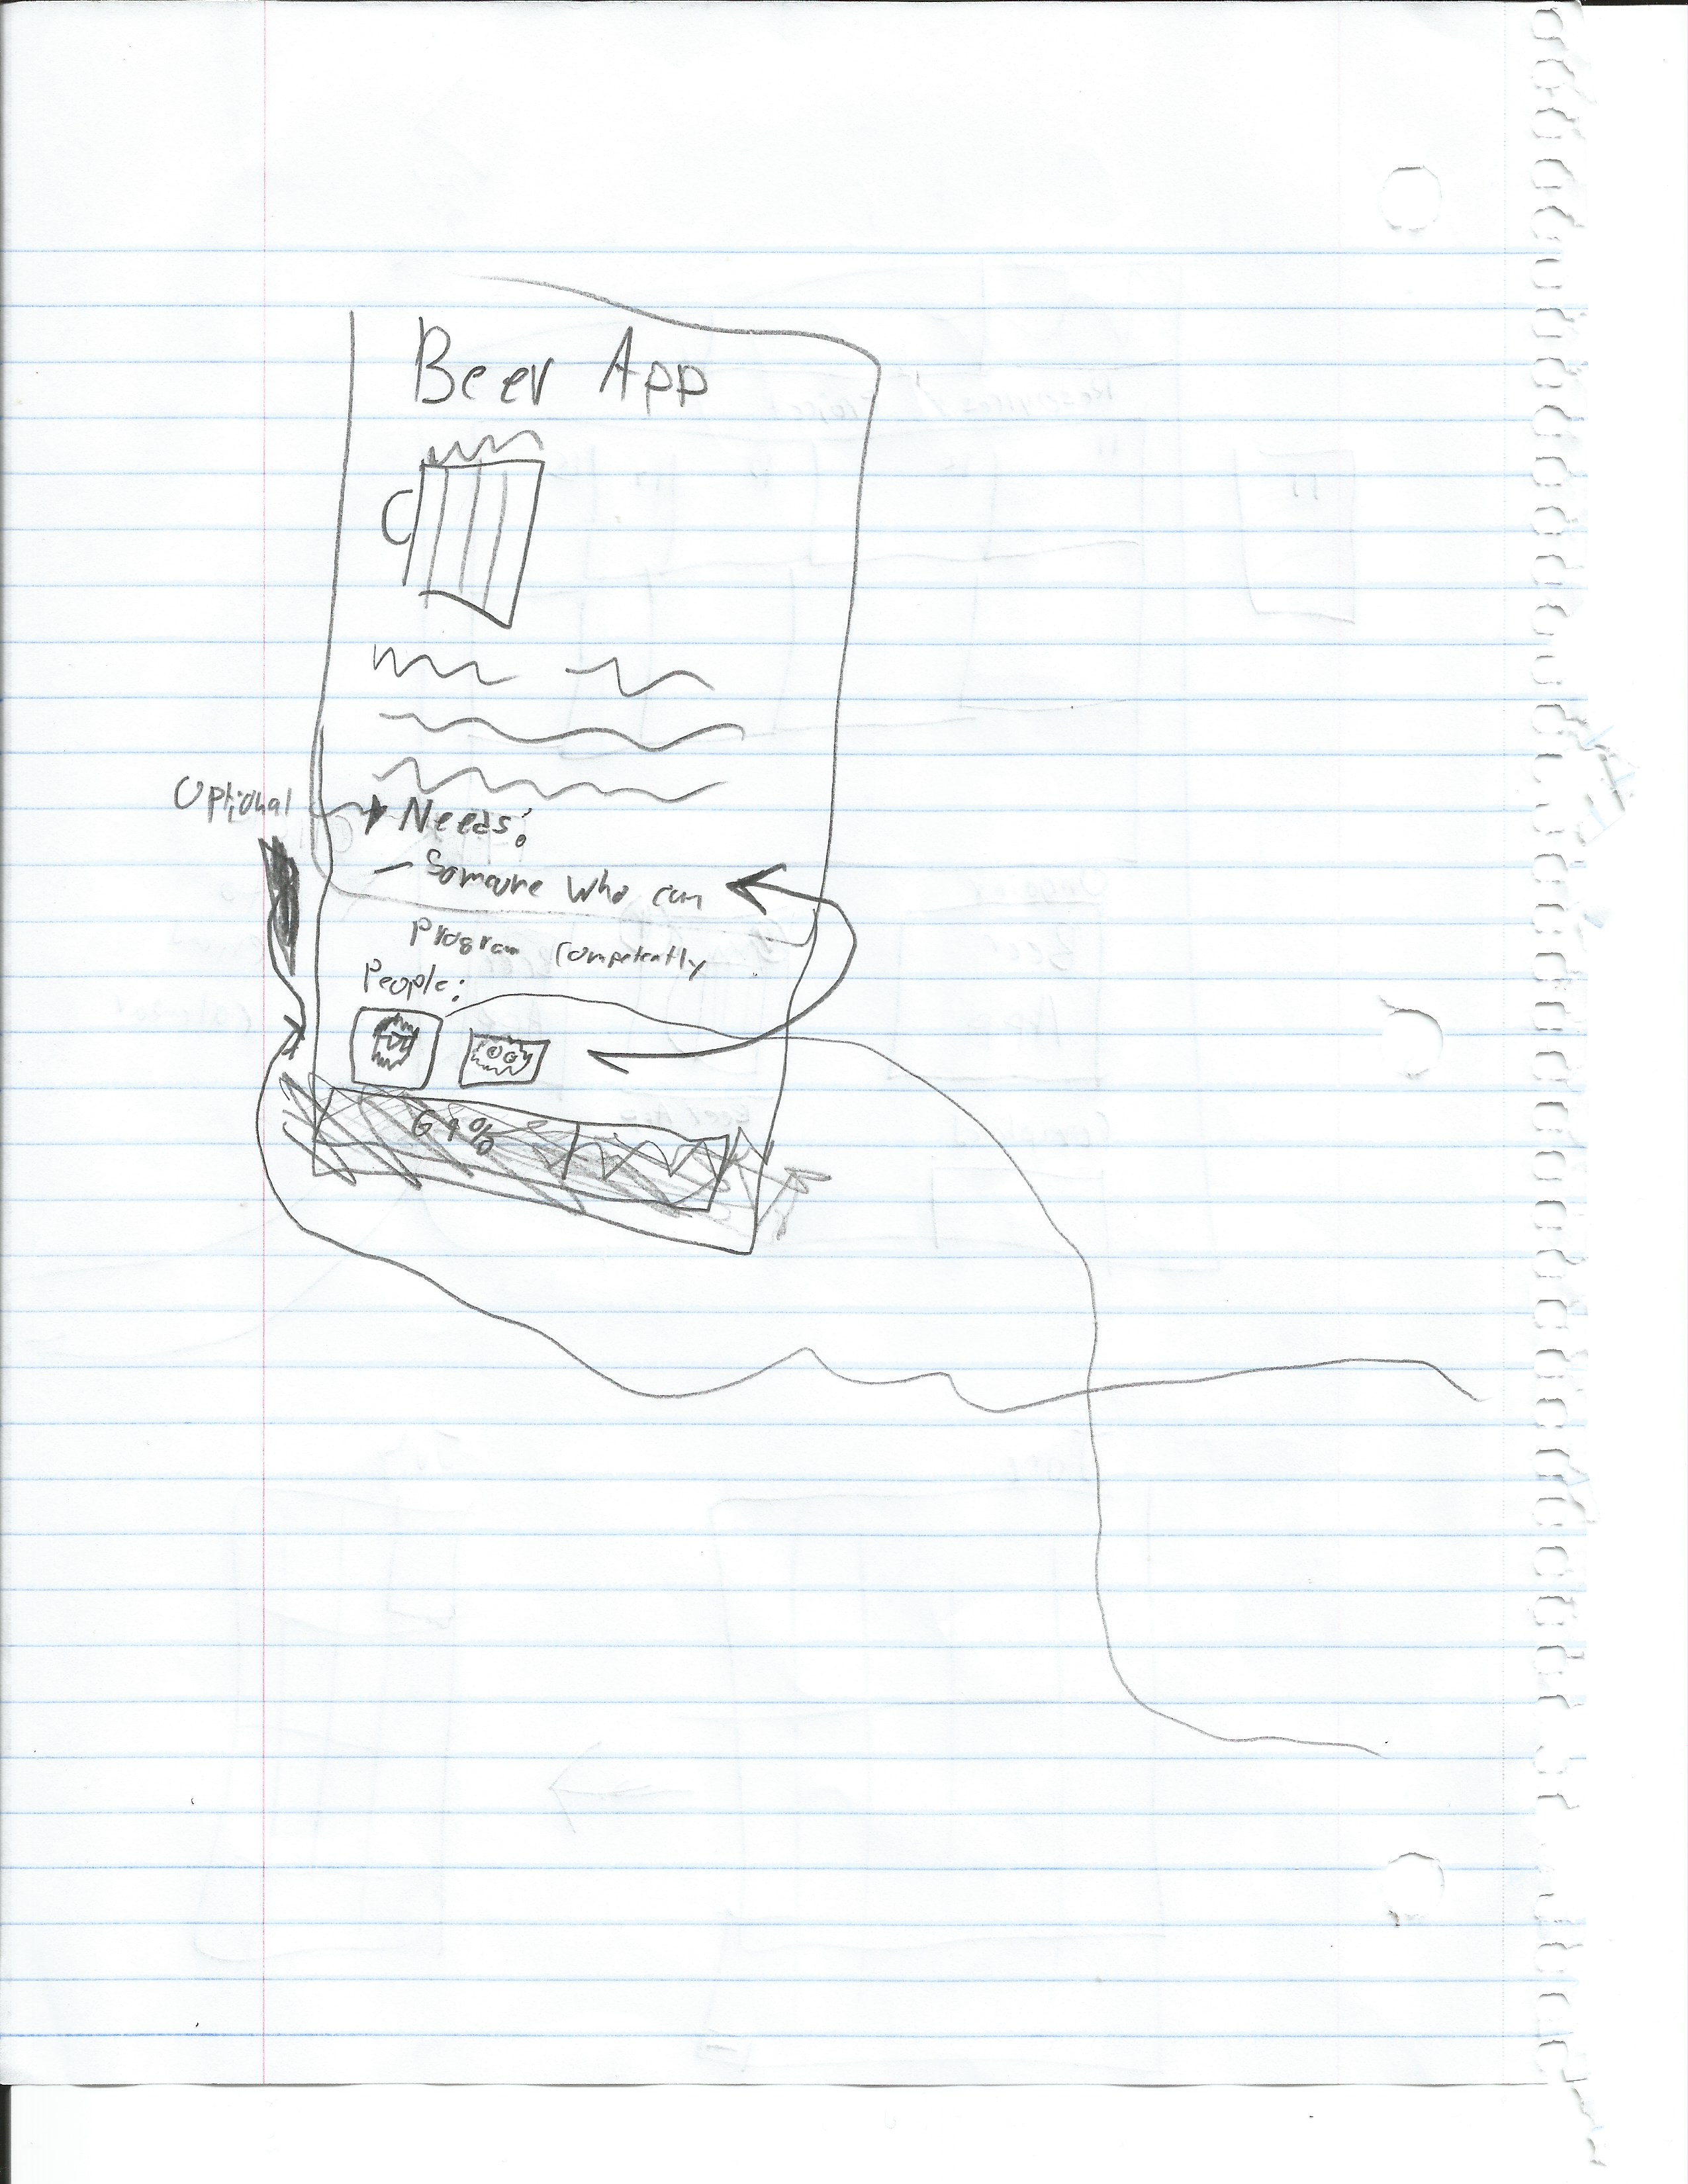 Beer App
Optional
Needs:
- Someone who can
Program Competently
People:
64%